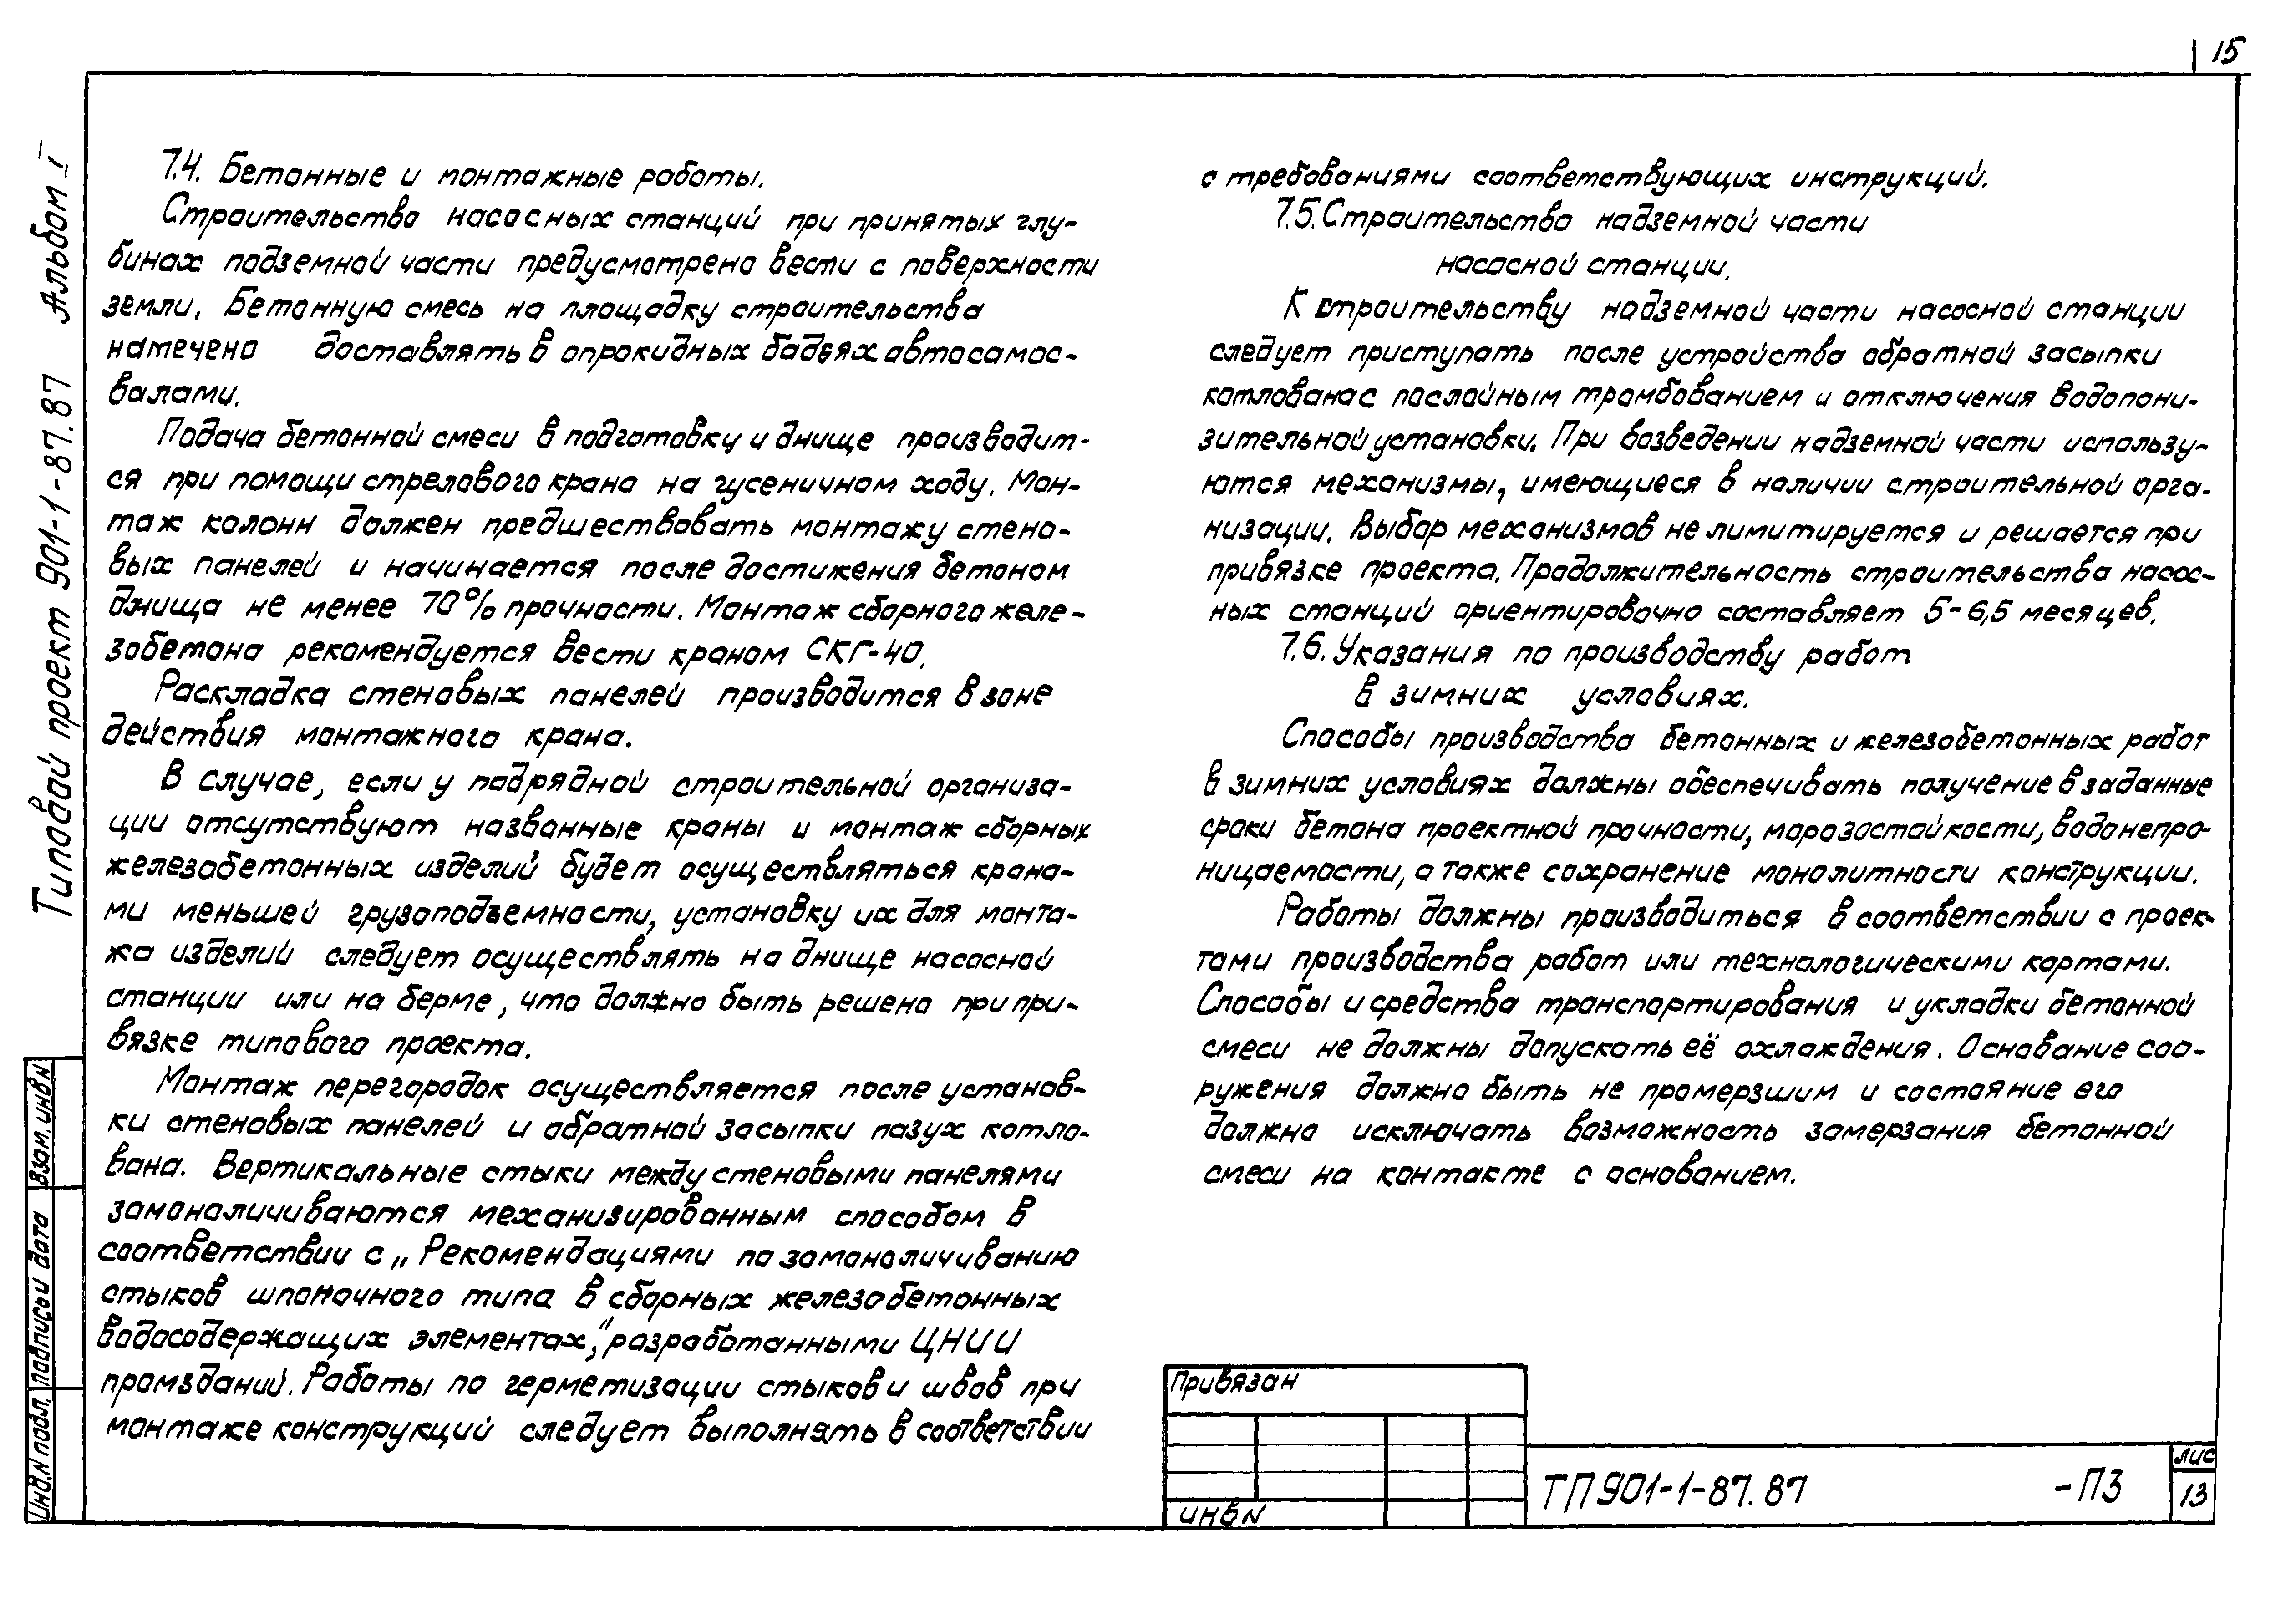 15
Типовой проект 901-1-87.87 Альбом I
7.4. Бетонные и монтажные работы.
Строительство насосных станций при принятых глу-
бинах подземной части предусмотрено вести с поверхности
земли. Бетонную смесь на площадку строительства
намечено доставлять в опрокидных бадьях автосамос-
валами.
Подача бетонной смеси в подготовку и днище производит-
ся при помощи стрелового крана на гусеничном ходу. Мон-
таж колонн должен предшествовать монтажу стено-
вых панелей и начинается после достижения бетоном
днища не менее 70% прочности. Монтаж сборного желе-
зобетона рекомендуется вести краном СКГ-40.
Раскладка стеновых панелей производится в зоне
действия монтажного крана.
В случае, если у подрядной строительной организа-
ции отсутствуют названные краны и монтаж сборных
железобетонных изделий будет осуществляться крана-
ми меньшей грузоподъемности, установку их для монта-
жа изделий следует осуществлять на днище насосной
станции или на берме, что должно быть решено при при-
вязке типового проекта.
Монтаж перегородок осуществляется после установ-
ки стеновых панелей и обратной засыпки пазух котло-
вана. Вертикальные стыки между стеновыми панелями
замоноличиваются механизированным способом в
соответствии с „Рекомендациями по замоноличиванию
стыков шпоночного типа в сборных железобетонных
водосодержащих элементах," разработанными ЦНИИ
промзданий. Работы по герметизации стыков и швов при
монтаже конструкций следует выполнять в соответствии
с требованиями соответствующих инструкций.
7.5. Строительство надземной части
насосной станции.
К строительству надземной части насосной станции
следует приступать после устройства обратной засыпки
котлована с послойным трамбованием и отключения водопони-
зительной установки. При возведении надземной части использу-
ются механизмы, имеющиеся в наличии строительной орга-
низации. Выбор механизмов не лимитируется и решается при
привязке проекта. Продолжительность строительства насос-
ных станций ориентировочно составляет 5-6,5 месяцев.
7.6. Указания по производству работ
в зимних условиях.
Способы производства бетонных и железобетонных работ
в зимних условиях должны обеспечивать получение в заданные
сроки бетона проектной прочности, морозостойкости, водонепро-
ницаемости, а также сохранение монолитности конструкции.
Работы должны производиться в соответствии с проек-
тами производства работ или технологическими картами.
Способы и средства транспортирования и укладки бетонной
смеси не должны допускать её охлаждения. Основание соо-
ружения должно быть не промерзшим и состояние его
должно исключать возможность замерзания бетонной
смеси на контакте с основанием.
Привязан
ИНВ N
ТП 901-1-87.87 -ПЗ
лис
13
Взам. инв N
подпись и дата
Инв. N подл.